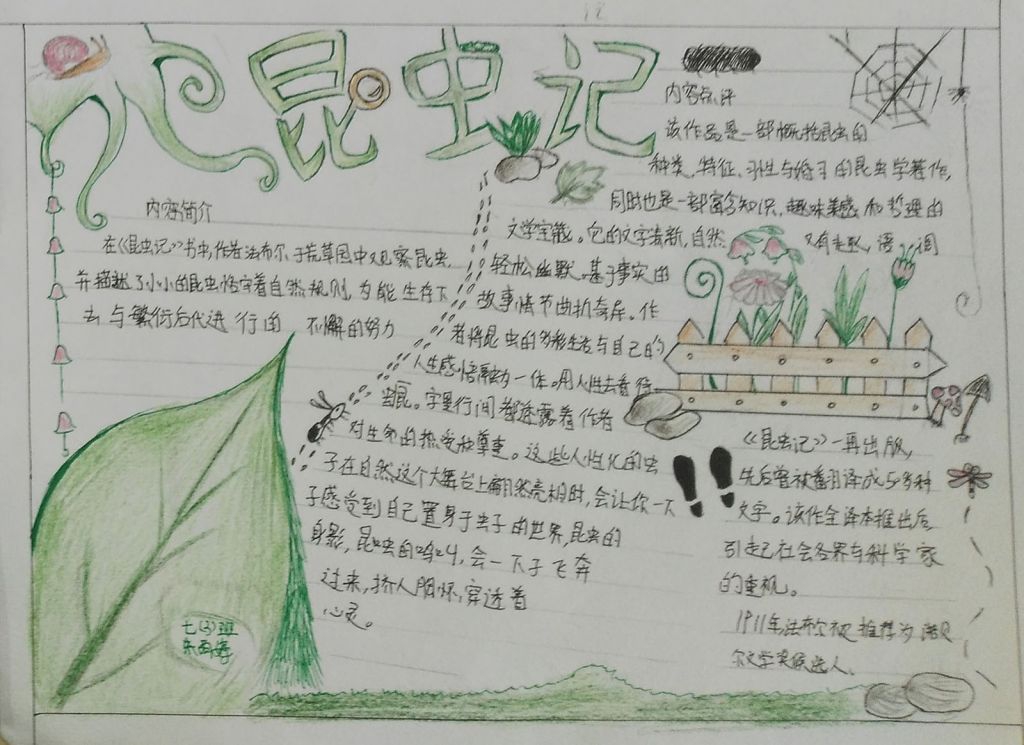 昆虫记
内容简介
在《昆虫记》书中,作者法布尔于荒草园中观察昆虫,
并描述了小小的昆虫恪守着自然规则,为能生存下
去与繁衍后代进行的 不懈的努力
内容点评
该作品是一部概括昆虫的
种类、特征、习性与婚习的昆虫学著作,
同时也是一部富含知识,趣味美感和哲理的
文学宝藏。它的文字清新,自然 又有趣,语调
轻松幽默,基于事实的
故事情节曲折奇异。作
者将昆虫的多彩生活与自己的
人生感悟融为一体。用人性去看待
昆虫。字里行间都透露着作者
对生命的热爱和尊重。这些人性化的虫
子在自然这个大舞台上翩然亮相时,会让你一下
子感受到自己置身于虫子的世界,昆虫的
身影,昆虫的鸣叫,会一下子飞奔
过来,挤入胸怀,穿透着
心灵。
《昆虫记》一再出版,
先后曾被翻译成50多种
文字。该作全译本推出后
引起社会各界与科学家
的重视。
1911年法布尔被推荐为诺贝
尔文学奖候选人.
七(3)班